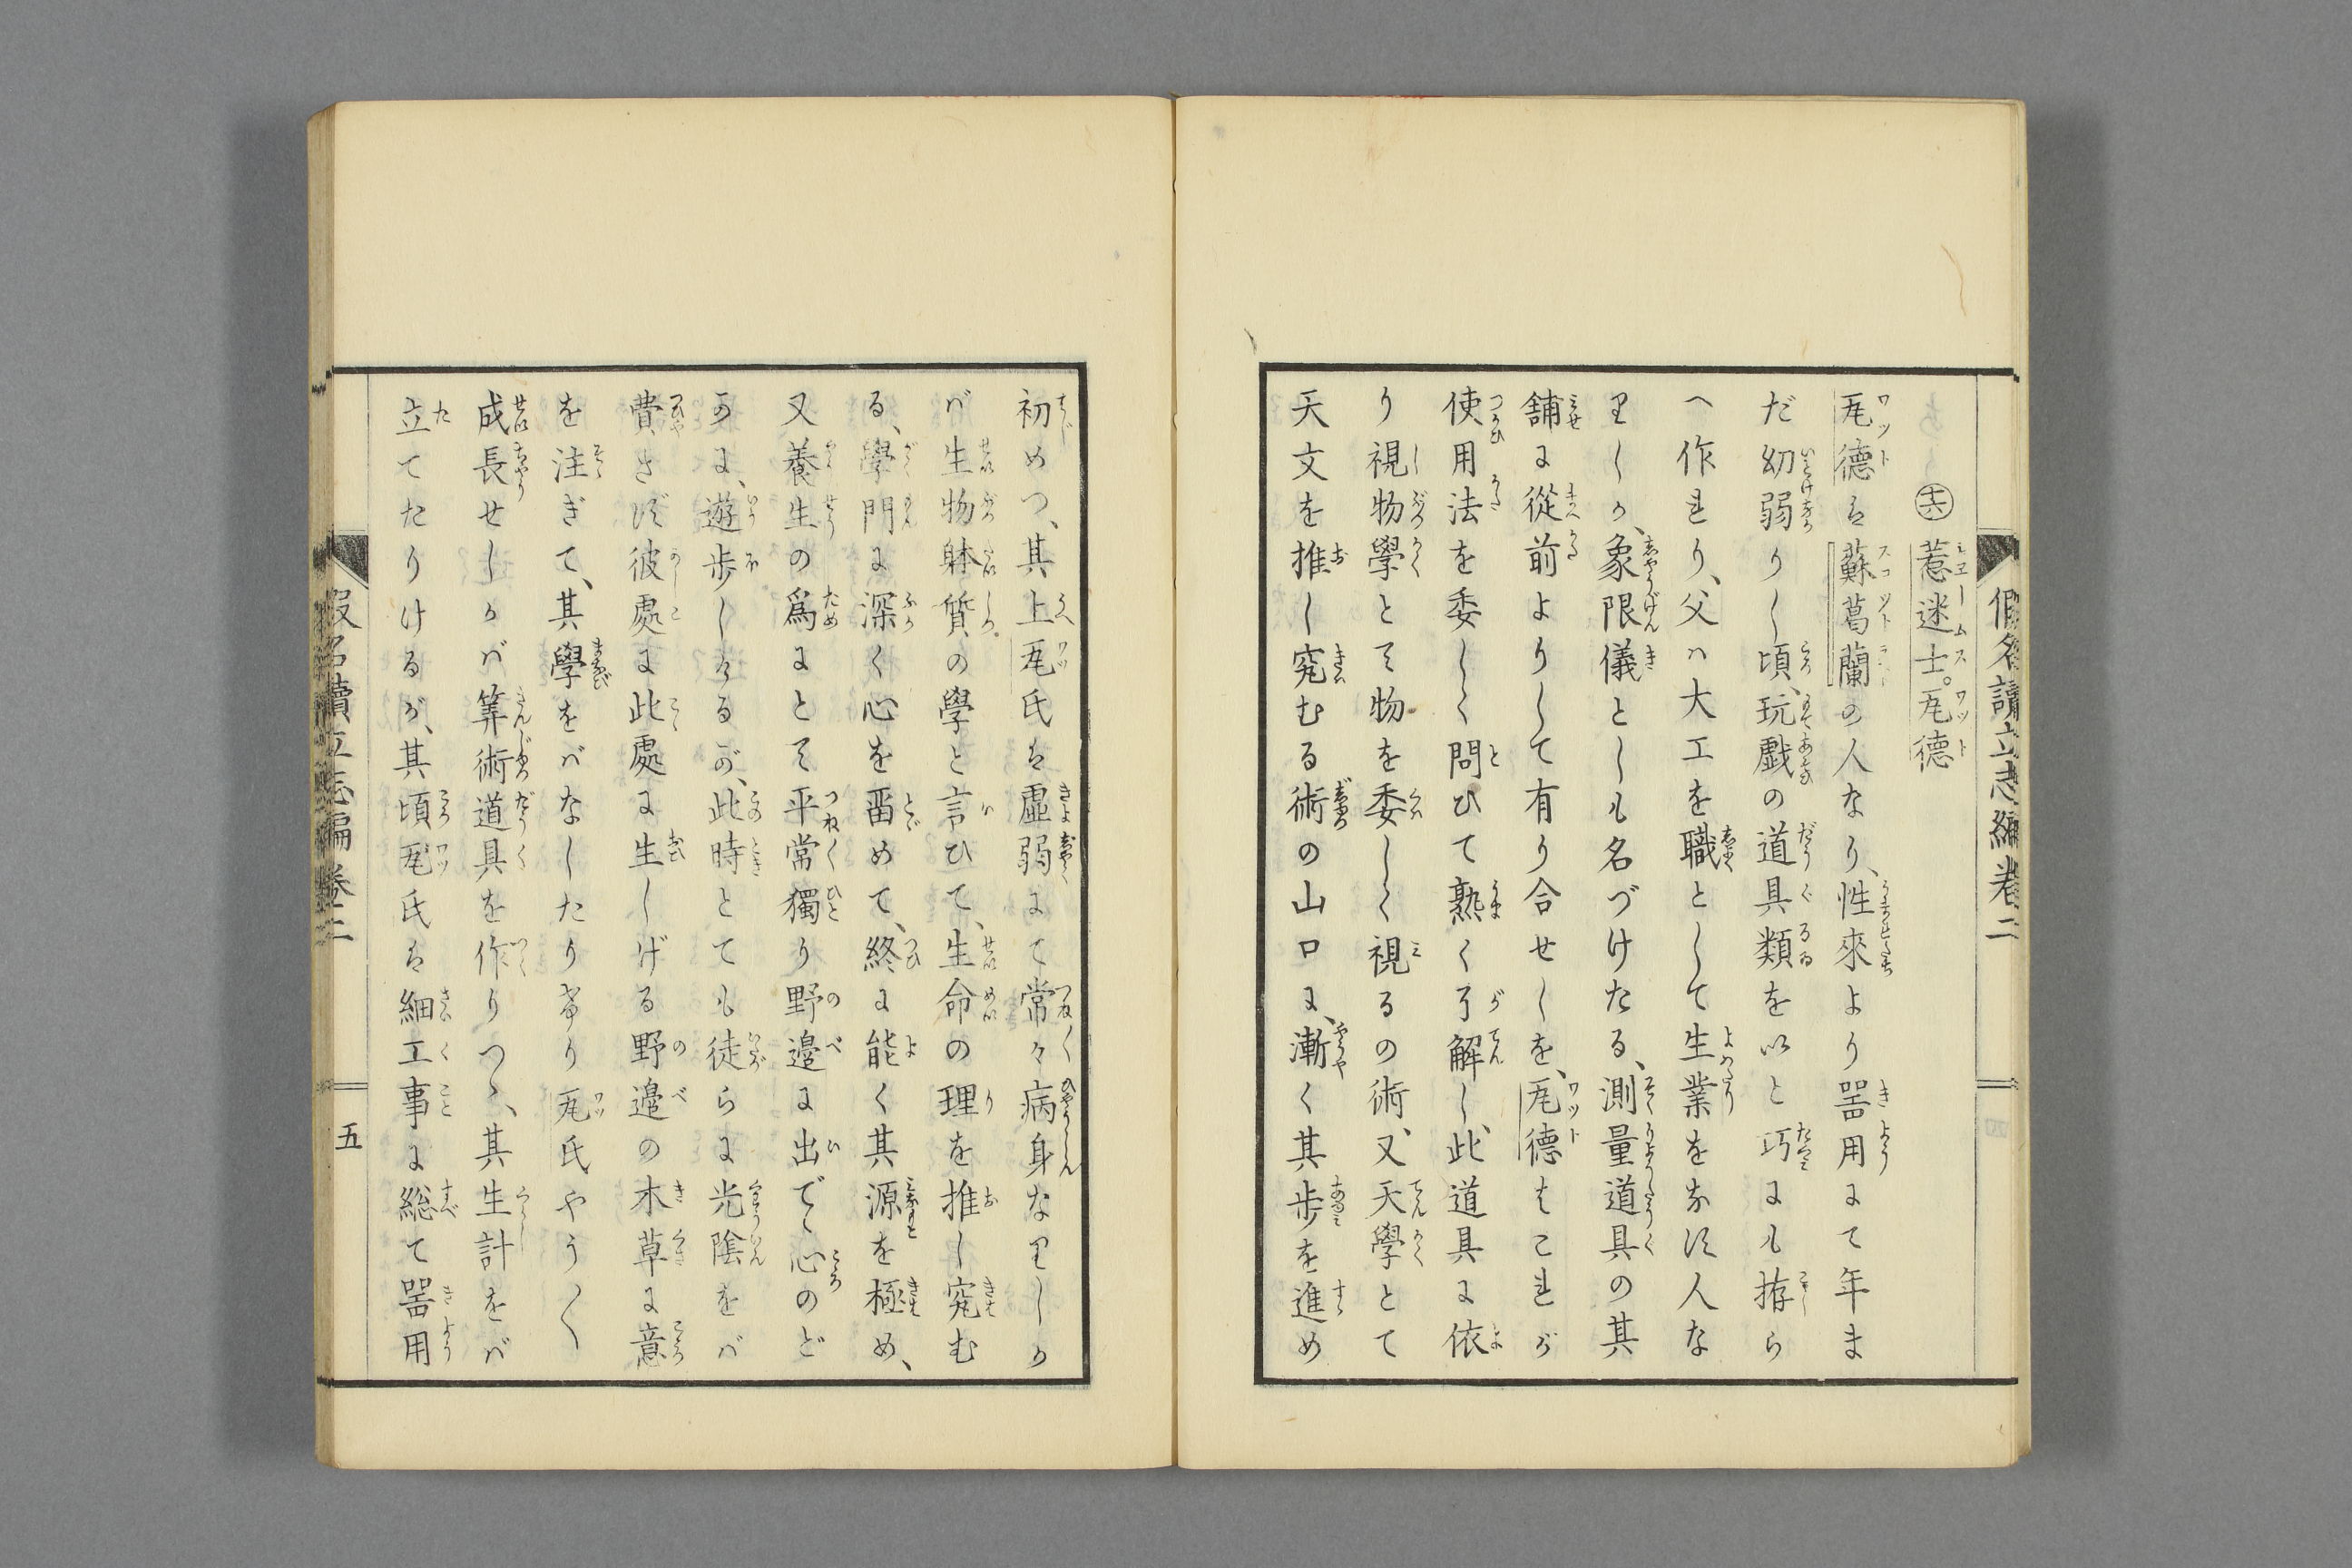 假名讀立志編卷二
㊅ 惹迷士。瓦德
瓦德は蘇葛蘭の人なり、性來より器用にて年ま
だ幼弱かりし頃、玩戯の道具類を以と巧にも拵ら
へ作れり、父ハ大工を職として生業をなす人な
りしが、象限儀としも名づけたる、測量道具の其
舗に從前よりして有り合せしを、瓦德はこれが
使用法を委しく問ひて熟く了解し、此道具に依
り視物學とて物を委しく視るの術、又天學とて
天文を推し究むる術の山口に、漸く其歩を進め
初めつ、其上瓦氏は虛弱にて常々病身なりしか
バ生物躰質の學と言ひて、生命の理を推し究む
る、學門に深く心を畱めて、終に能く其源を極め、
又養生の爲にとて平常獨り野邉に出で、心のど
かに、遊歩しけるが、此時とても徒らに光陰をバ
費さず彼處に此處に生しげる野邉の木草に意
を注ぎて、其學をバなしたりけり瓦氏やう〱
成長せしかバ算術道具を作りつゝ、其生計をバ
立てたりけるが、其頃瓦氏は細工事に総て器用
假名讀立志編卷二
五